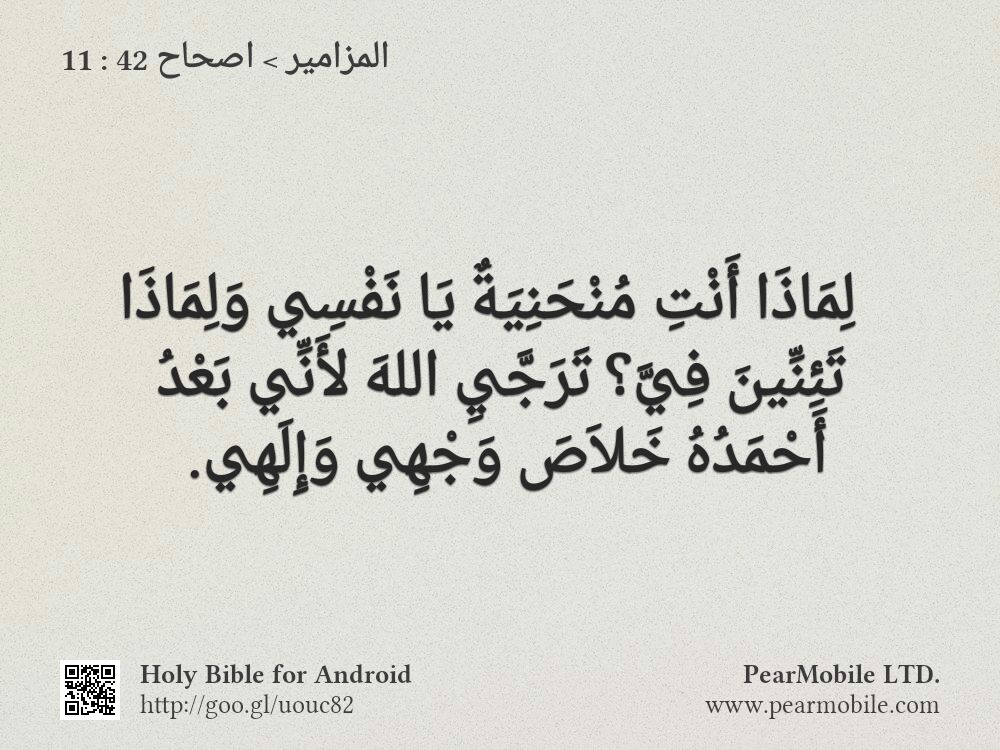 المزامير > اصحاح 42 : 11
لِمَاذَا أَنْتِ مُنْحَنِيَةٌ يَا نَفْسِي وَلِمَاذَا
تَئِنِّينَ فِيَّ؟ تَرَجَّيِ اللهَ لأَنِّي بَعْدُ
أَحْمَدُهُ خَلاَصَ وَجْهِي وَإِلَهِي.
Holy Bible for Android
http://goo.gl/uouc82
PearMobile LTD.
www.pearmobile.com